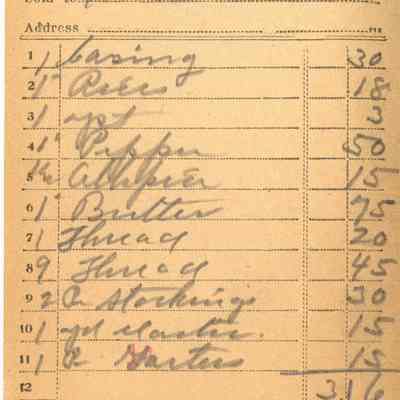 Address
1 1 basing 30
2 1" 18
3 1 3
4 1" Pepper 50
5 15
6 1" Butter 75
7 1 Thread 20
8 9 Thread 45
9 2 Pr Stockings 30
10 1 yd elastic. 15
11 1 Pr Garters 15
12 3 16